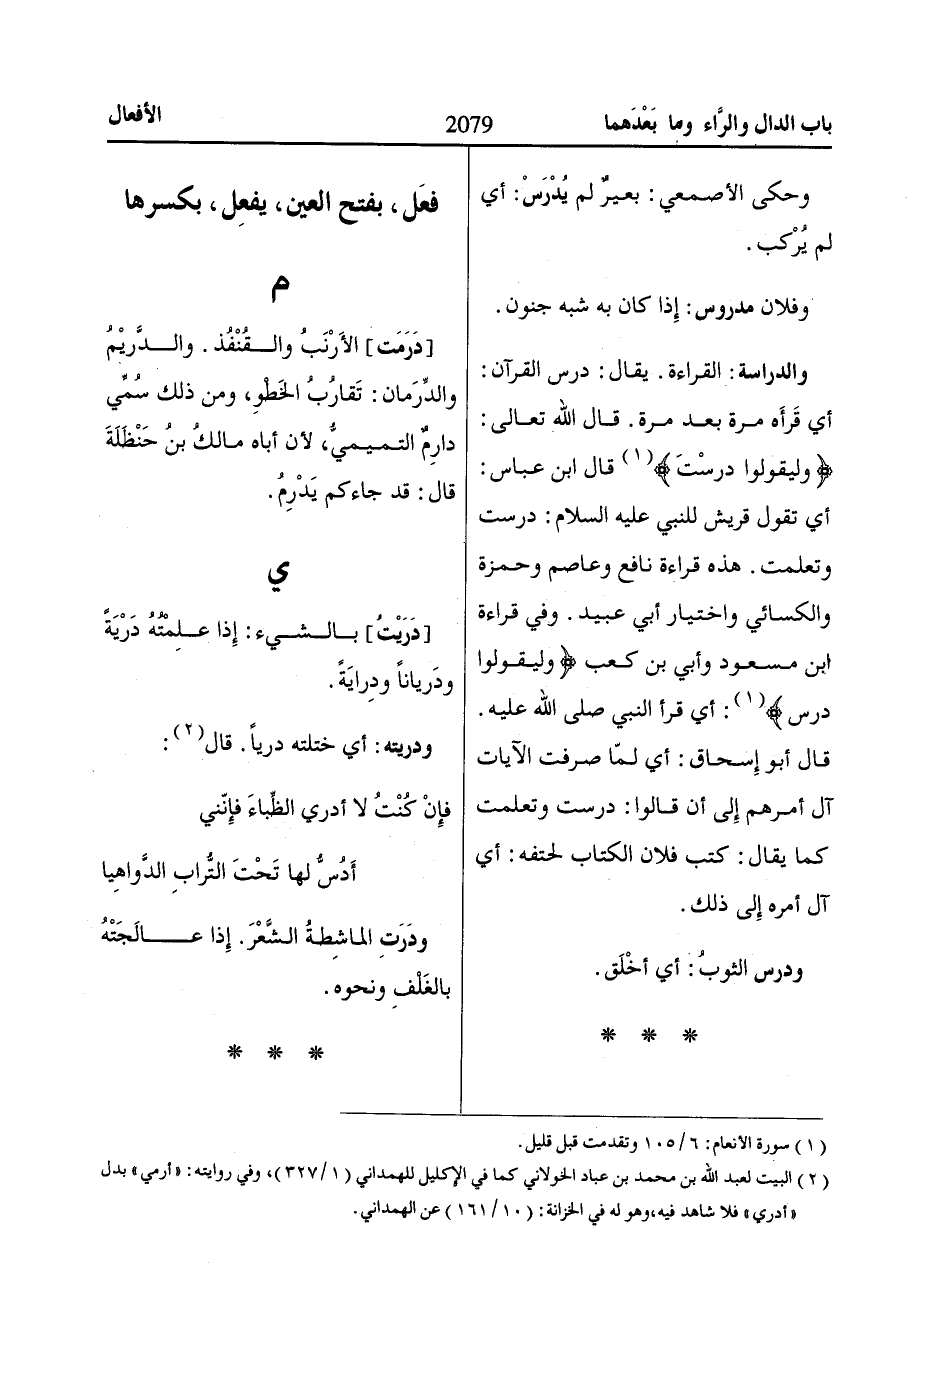 باب الدال والرَّاء وما بَعْدَهما
2079
الأفعال
وحكى الأصمعي: بعيرٌ لم يُدْرَسْ: أي
لم يُرْكب.
وفلان مدروس: إذا كان به شبه جنون.
والدراسة: القراءة. يقال: درس القرآن:
أي قَرأه مرة بعد مرة. قال الله تعالى:
﴿وليقولوا درسْتَ﴾(١) قال ابن عباس:
أي تقول قريش للنبي عليه السلام: درست
وتعلمت. هذه قراءة نافع وعاصم وحمزة
والكسائي واختيار أبي عبيد. وفي قراءة
ابن مسعود وأبي بن كعب ﴿وليقولوا
درس﴾(١): أي قرأ النبي صلى الله عليه.
قال أبو إسحاق: أي لمّا صرفت الآيات
آل أمرهم إلى أن قالوا: درست وتعلمت
كما يقال: كتب فلان الكتاب لحتفه: أي
آل أمره إلى ذلك.
ودرس الثوبُ: أي أخْلَق.
* * *
فعَل، بفتح العين، يفعِل، بكسرها
م
[دَرَمَت] الأَرْنَبُ والقُنْفُذ. والدَّرِيْمُ
والدِّرَمان: تَقارُبُ الخَطْوِ، ومن ذلك سُمِّي
دارِمٌ التميميُّ، لأن أباه مالكُ بنُ حَنْظَلَةَ
قال: قد جاءكم يَدْرِمُ.
ي
[دَرَيْتُ] بالشيء: إذا علِمْتُهُ دَرْيَةً
ودَرياناً ودرايَةً.
ودريته: أي ختلته درياً. قال(٢):
فإِنْ كُنْتُ لا أدري الظِّباءَ فإنّني
أدُسُّ لها تَحْتَ التُّرابِ الدَّواهِيا
ودَرَتِ الماشِطةُ الشَّعْرَ. إذا عالَجَتْهُ
بالغَلْفِ ونحوه.
* * *
(١) سورة الأنعام: ٦/١٠٥ وتقدمت قبل قليل.
(٢) البيت لعبد الله بن محمد بن عباد الخولاني كما في الإكليل للهمداني (١/٣٢٧)، وفي روايته: «أرمي» بدل
«أدري» فلا شاهد فيه،وهو له في الخزانة: (١٠/١٦١) عن الهمداني.